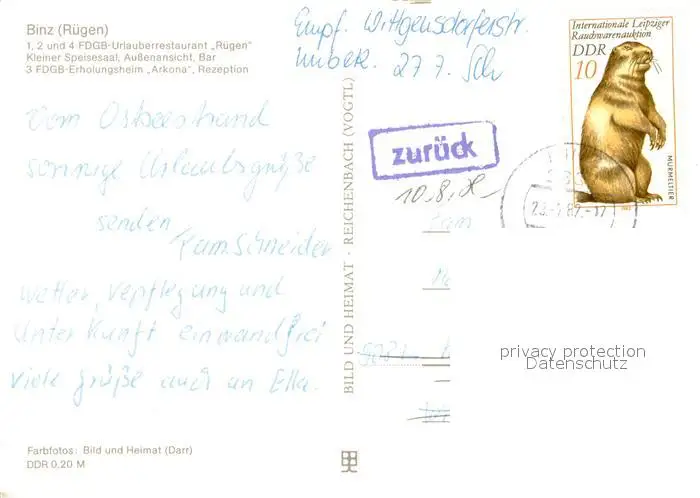 Binz (Rügen)
1, 2 und 4 FDGB-Urlauberrestaurant „Rügen"
Kleiner Speisesaal, Außenansicht, Bar
3 FDGB-Erholungsheim „Arkona", Rezeption
Vom Ostseestrand
sonnige Urlaubsgrüße
senden
Fam. Schneider
Wetter, Verpflegung und
Unterkunft einwandfrei
viele Grüße auch an Ella.
Farbfotos: Bild und Heimat (Darr)
DDR 0,20 M
BILD UND HEIMAT · REICHENBACH (VOGTL)
Empf. Wittgensdorferstr.
unbek. 27 7. Sch
zurück
10.8.
Internationale Leipziger
Rauchwarenauktion
DDR
10
MURMELTIER
Fam
privacy protection
Datenschutz